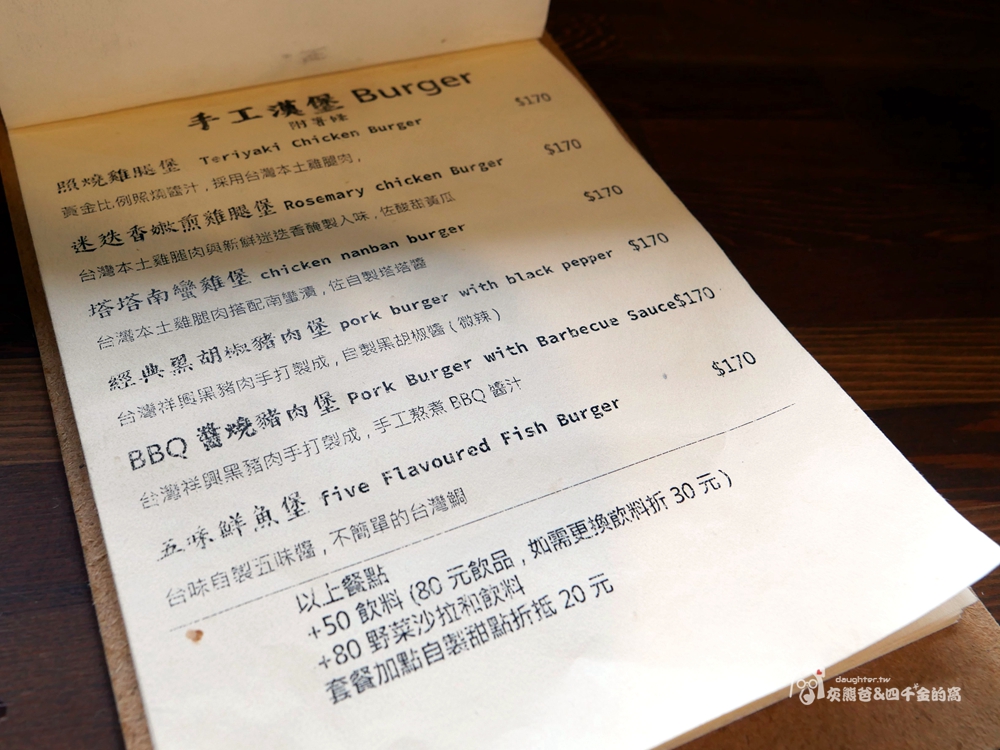 手工漢堡 Burger
附薯條
照燒雞腿堡 Teriyaki Chicken Burger $170
黃金比例照燒醬汁,採用台灣本土雞腿肉,
迷迭香嫩煎雞腿堡 Rosemary chicken Burger $170
台灣本土雞腿肉與新鮮迷迭香醃製入味,佐酸甜黃瓜
塔塔南蠻雞堡 chicken nanban burger $170
台灣本土雞腿肉搭配南蠻漬,佐自製塔塔醬
經典黑胡椒豬肉堡 pork burger with black pepper $170
台灣祥興黑豬肉手打製成,自製黑胡椒醬(微辣)
BBQ 醬燒豬肉堡 Pork Burger with Barbecue Sauce$170
台灣祥興黑豬肉手打製成,手工熬煮 BBQ 醬汁
五味鮮魚堡 Five Flavoured Fish Burger $170
台味自製五味醬,不簡單的台灣鯛
以上餐點
+50 飲料 (80 元飲品,如需更換飲料折 30 元)
+80 野菜沙拉和飲料
套餐加點自製甜點折抵 20 元
daughter.tw
灰熊爸&四千金的窩